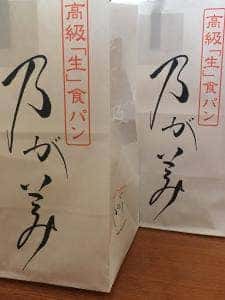 高級「生」食パン
乃が美
高級「生」食パン
乃が美